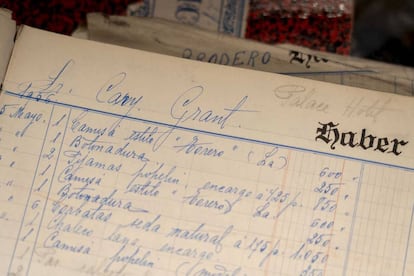 BRODERO
Sr. Cary Grant.
Palace Hotel
Haber
5 Mayo. 1 Camisa estilo "Torero" (La) 600
1 Botonadura 250
2 Pijamas popelin, encargo a 425 p. 850
1 Camisa estilo "Torero) La) 600
1 Botonadura 250
6 Corbatas seda natural a 175 p. 1.050
1 Chaleco encargo 350
Camisa popelin